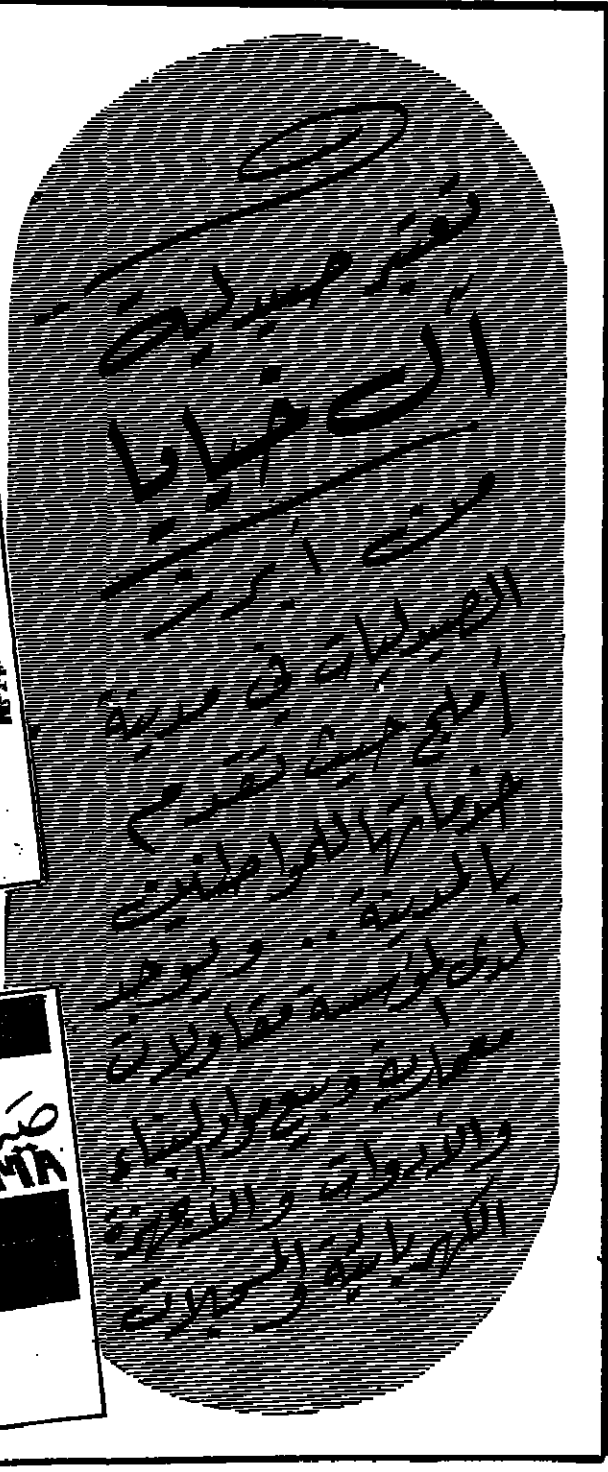 تعتبر صيدلية
آل خيايا
من أبرز
الصيدليات في مدينة
أملج حيث تقدم
خدماتها للمواطنين
بالمدينة .. ويوجد
لدى المؤسسة مقاولات
معمارية وبيع مواد البناء
والأدوات والأجهزة
الكهربائية والمسجلات